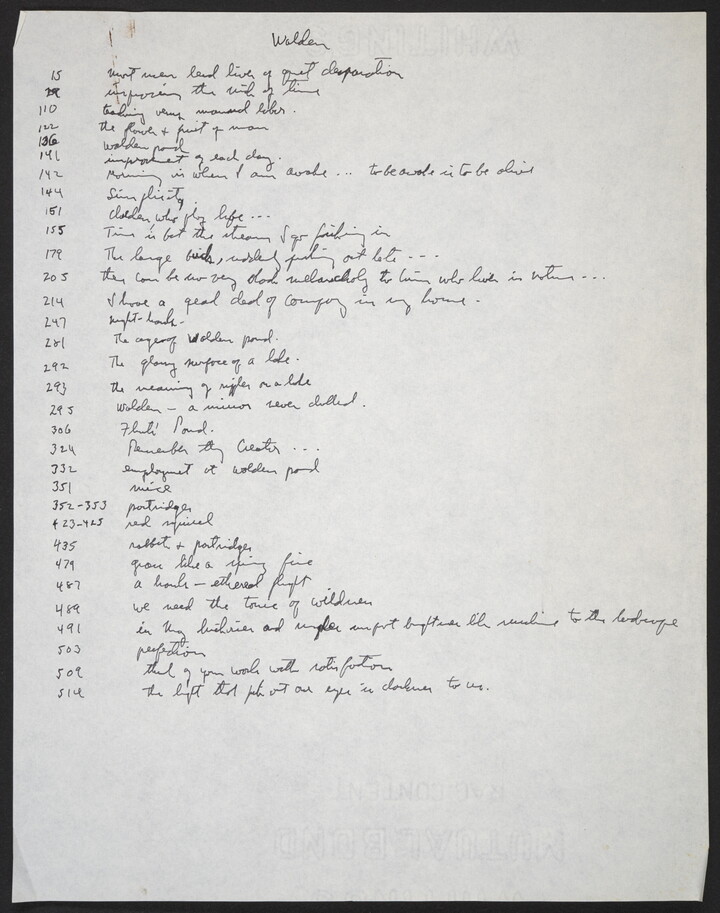 Walden
15 most men lead lives of quiet desperation
29 improving the nick of time
110 teaching versus manual labor.
122 the flower + fruit of man
136 Walden pond
141 improvement of each day.
142 Morning is when I am awake ... to be awake is to be alive
144 Simplicity
151 Children who play life ...
155 Time is but the stream I go fishing in
179 The large buds, suddenly pushing out late ...
205 there can be no very black melancholy to him who lives in nature ...
214 I have a great deal of company in my house.
247 night-hawk.
281 The age of Walden pond.
292 The glassy surface of a lake.
293 the meaning of ripples on a lake
295 Walden - a mirror never dulled.
306 Flints' Pond.
324 Remember thy Creator ...
332 employment at Walden pond
351 mice
352-353 partridges
423-425 red squirrel
435 rabbit + partridges
479 grass like a spring fire
487 a hawk - ethereal flight
489 we need the tonic of wildness
491 hickories and maples impart brightness like sunshine to the landscape
503 perfection
509 think of your work with satisfaction
514 the light that puts out our eyes is darkness to us.